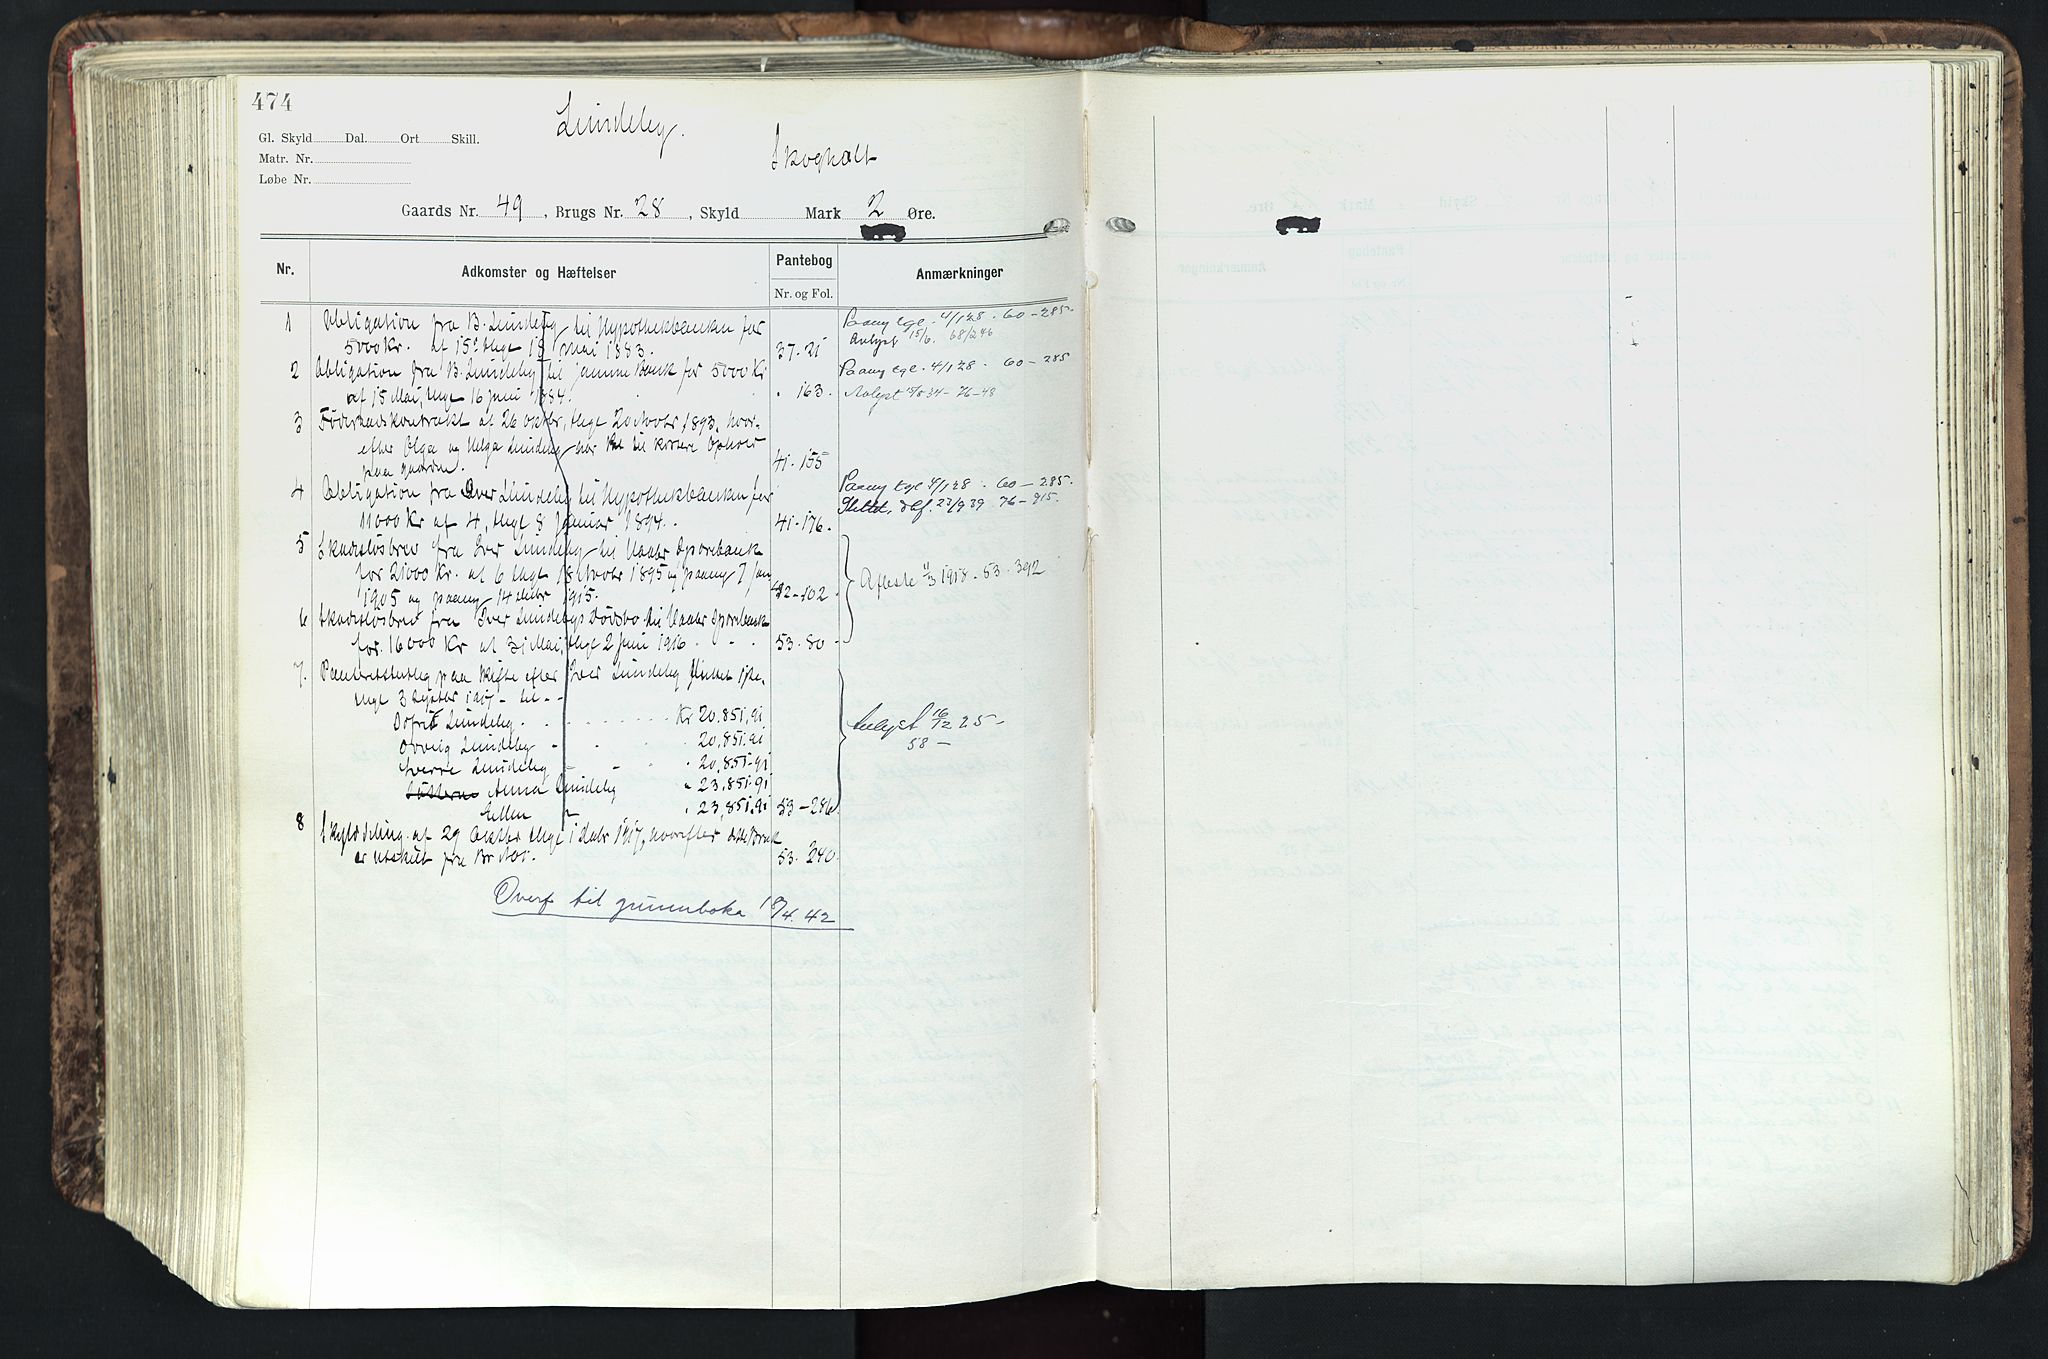 474
Lundeby.
Gl. Skyld Dal. Ort Skill.
Matr. Nr.
Skogholt
Løbe Nr.
Gaards Nr. 49, Brugs Nr. 28, Skyld Mark 2 Øre.
Nr. Adkomster og Hæftelser Pantebog Anmærkninger
Nr. og Fol.
1 Obligation fra B. Lundeby til Hypothekbanken for Paany tgl. 4/1 28. 60-285.
5000 Kr. af 15. thgl 18 Mai 1883. 37.21 Avlyst 15/6. 68/246
2 Obligation fra B. Lundeby til samme Bank for 5000 Kr Paany tgl. 4/1 28. 60-285
af 15 Mai, thgl 16 Juni 1884. " 163. Avlyst 34-76-48
3 Føderaadskontrakt af 26 oktbr, thgl 20 Novbr 1893, hvor-
efter Olga og Helga Lundeby har Ret til kvære Ophold
paa gaarden. 41-155
4 Obligation fra Iver Lundeby til Hypothekbanken for Paany tgl 4/1 28. 60-285.
11000 Kr af 4, thgl 8 Januar 1894. 41-176. Slettet, dbf. 23/9 39 76-915.
5 Skadesløsbrev fra Iver Lundeby til Vaaler Sparebank
for 21000 Kr. af 6 thgl 18 Novbr 1895 og paany 7 Jan
1905 og paany 14 debr 1915. 42-102 Afleste 11/3 1918. 53. 392
6 Skadesløsbrev fra Iver Lundebys Dødsbo til Vaaler Sparebank
for 16000 Kr af 31 Mai, thgl 2 Juni 1916. 53.80
7. Panteretsutlæg paa Skifte efter Iver Lundeby sluttet
thgl 3 1917 - til -
Lundeby Kr 20,851,91
Lundeby " 20,851.91 Avlyst 16/12 25-
Sverre Lundeby " 20,851-91 58-
Anna Lundeby " 23,851.91
Ellen " " 23,851,91 53-286
8 Skylddeling af 29 Oktbr thgl 1 debr 1917, hvorefter dette Bruk
er utskilt fra Br No 1. 53.240.
Overf til grunnboka 18/4. 42